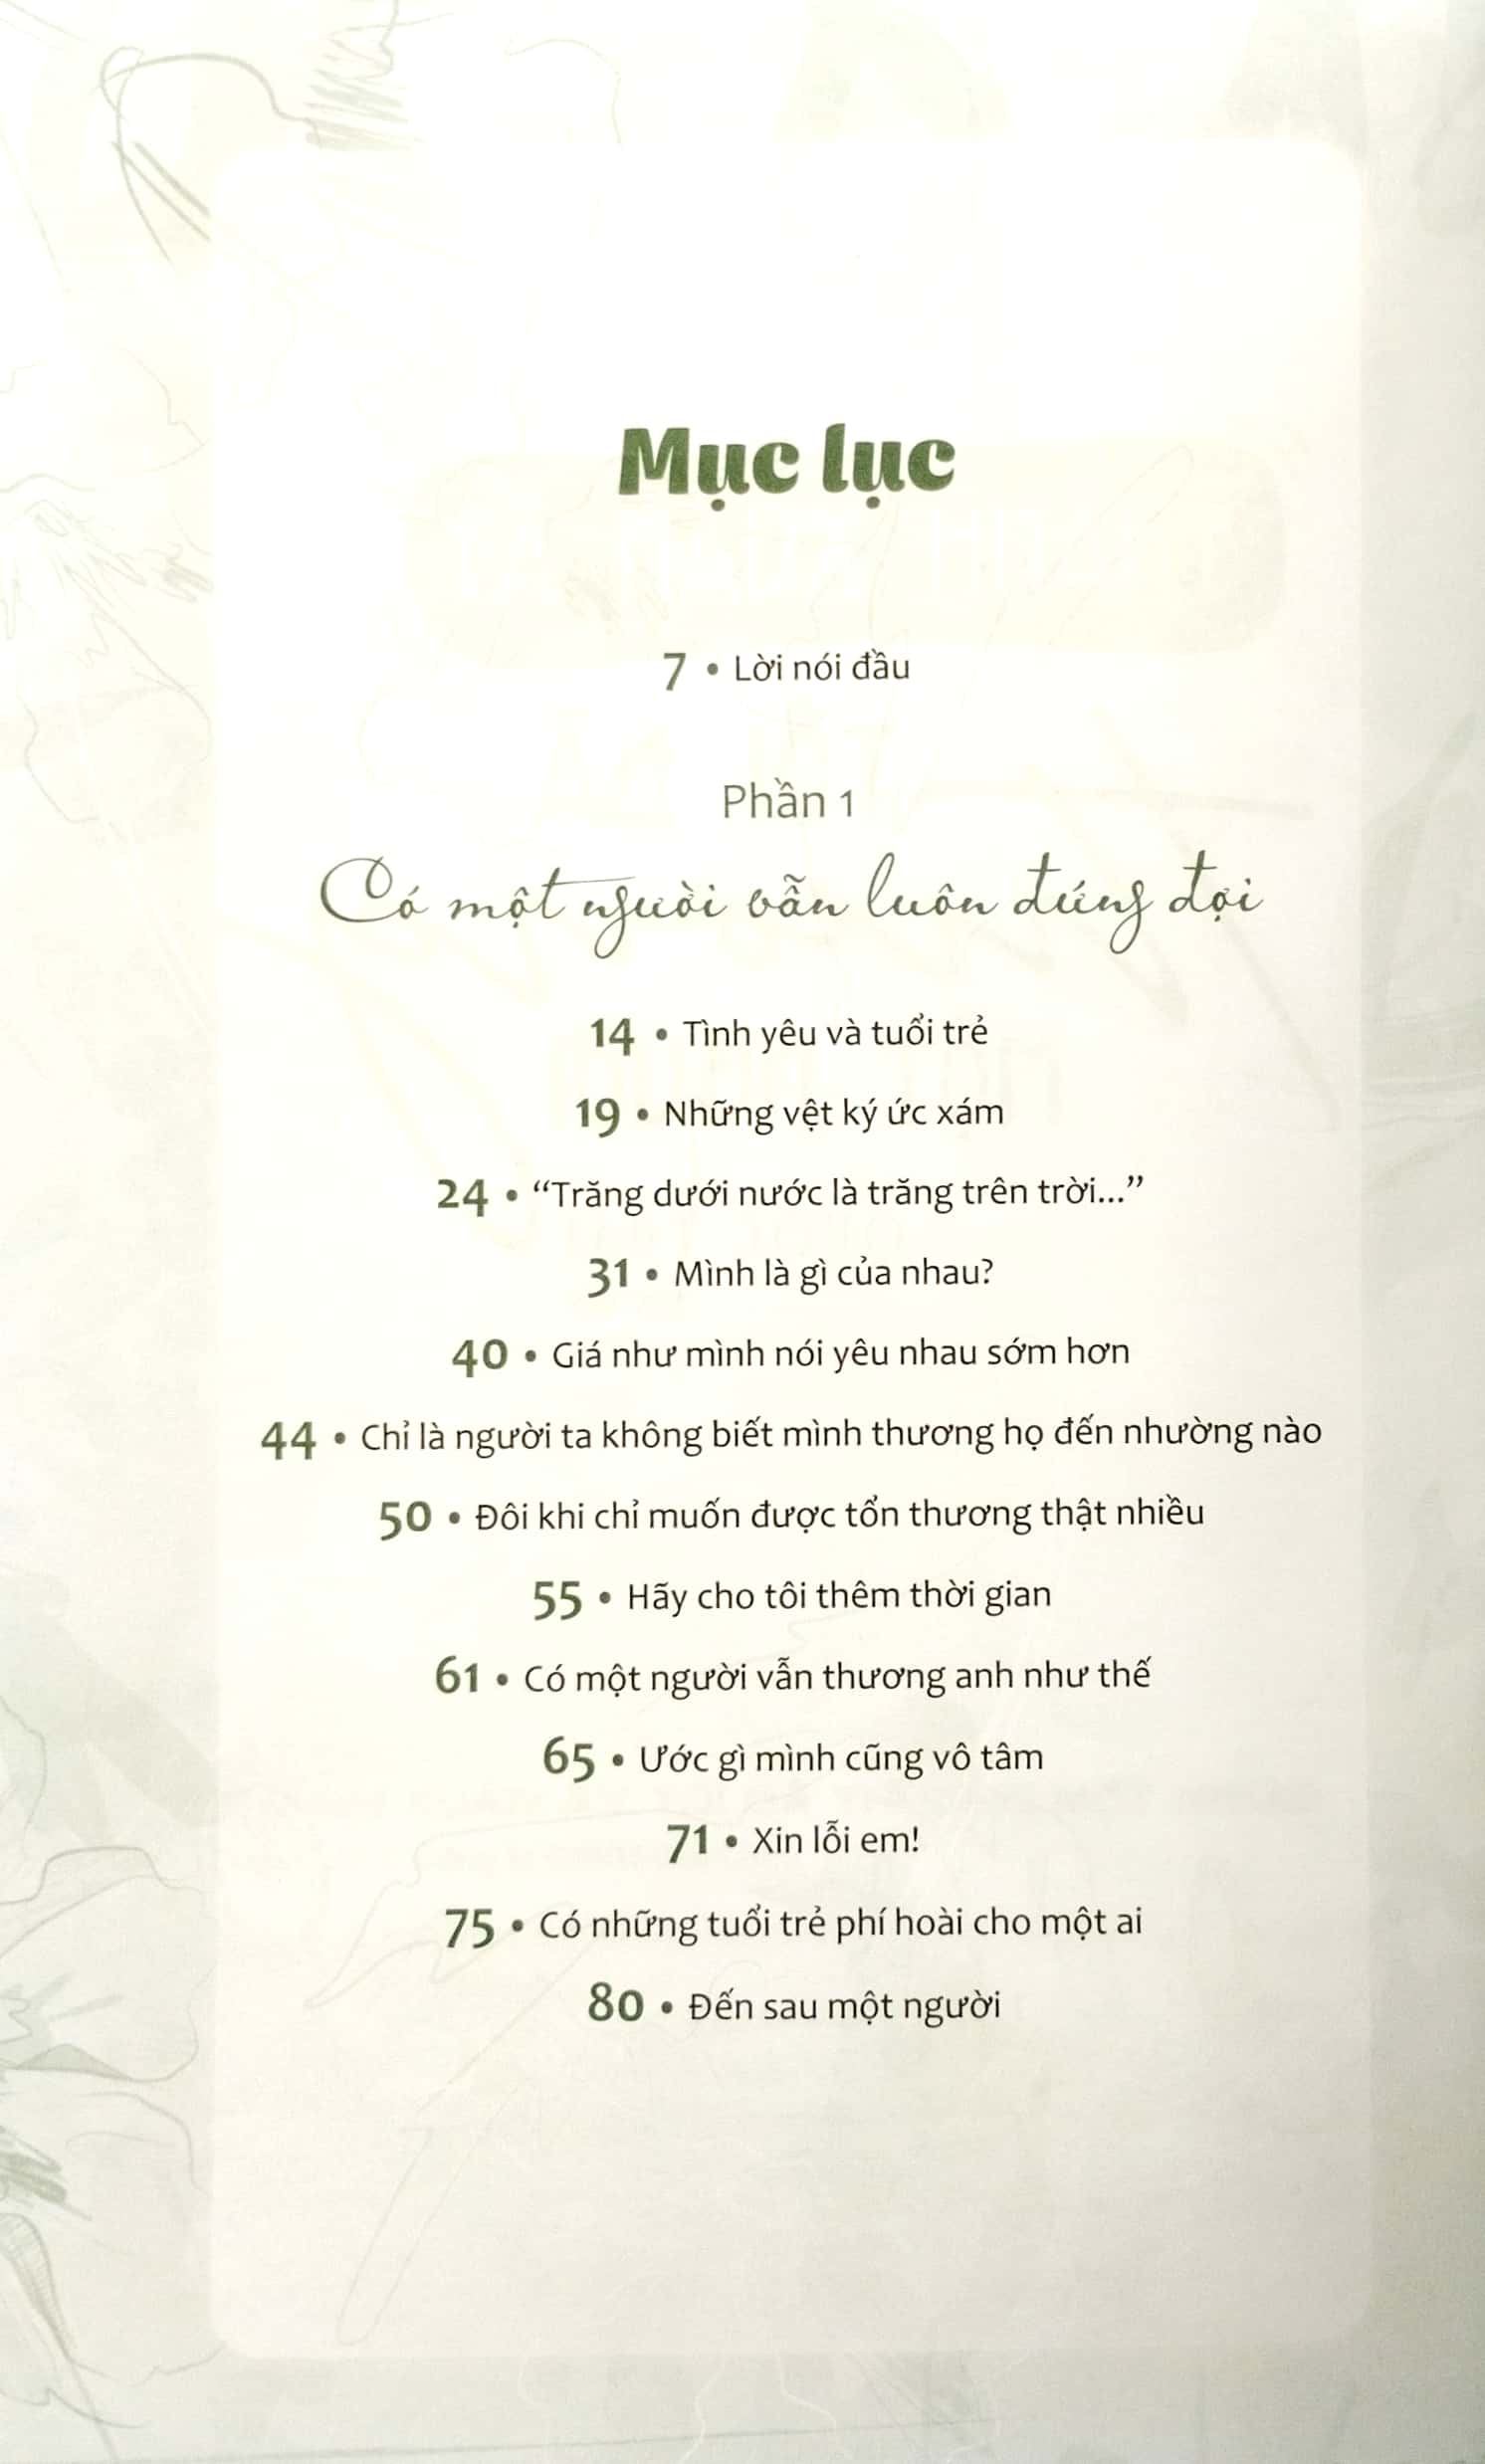 Mục lục
7 • Lời nói đầu
Phần 1
Có một người vẫn luôn đứng đợi
14 • Tình yêu và tuổi trẻ
19 • Những vệt ký ức xám
24 • “Trăng dưới nước là trăng trên trời...”
31 • Mình là gì của nhau?
40 • Giá như mình nói yêu nhau sớm hơn
44 • Chỉ là người ta không biết mình thương họ đến nhường nào
50 • Đôi khi chỉ muốn được tổn thương thật nhiều
55 • Hãy cho tôi thêm thời gian
61 • Có một người vẫn thương anh như thế
65 • Ước gì mình cũng vô tâm
71 • Xin lỗi em!
75 • Có những tuổi trẻ phí hoài cho một ai
80 • Đến sau một người